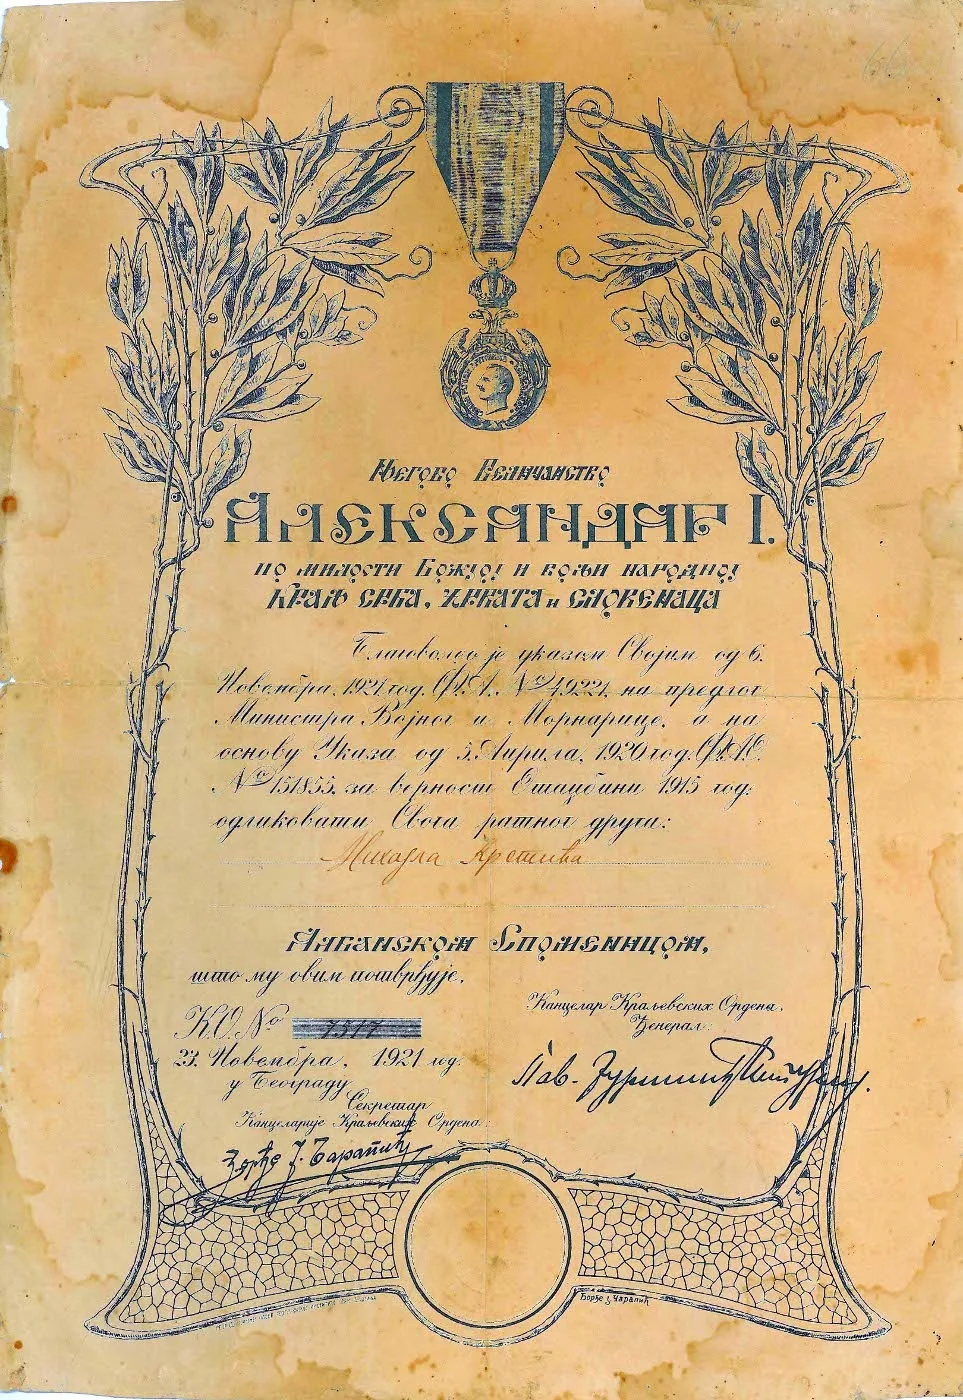 Његово Величанство
Александар I.
по милости Божјој и вољи народној
Краљ Срба, Хрвата и Словенаца
Благоволео је указом Својим од 6.
Новембра, 1921 год. Ф.А. № 49221, на предлог
Министра Војног и Морнарице, а на
основу Указа од 5. Априла, 1920 год. Ф.А.О.
№ 151855, за верност Отаџбини 1915 год:
одликовати Свога ратног друга:
Михајла Крстића
Албанском Споменицом,
што му овим потврђује.
Канцелар Краљевских Ордена,
Ђенерал:
К.О. № 7517
23. Новембра, 1921 год.
у Београду
Секретар
Канцеларије Краљевских Ордена:
Ђорђе Ј. Чарапић
Ђорђе Ј. Чарапић